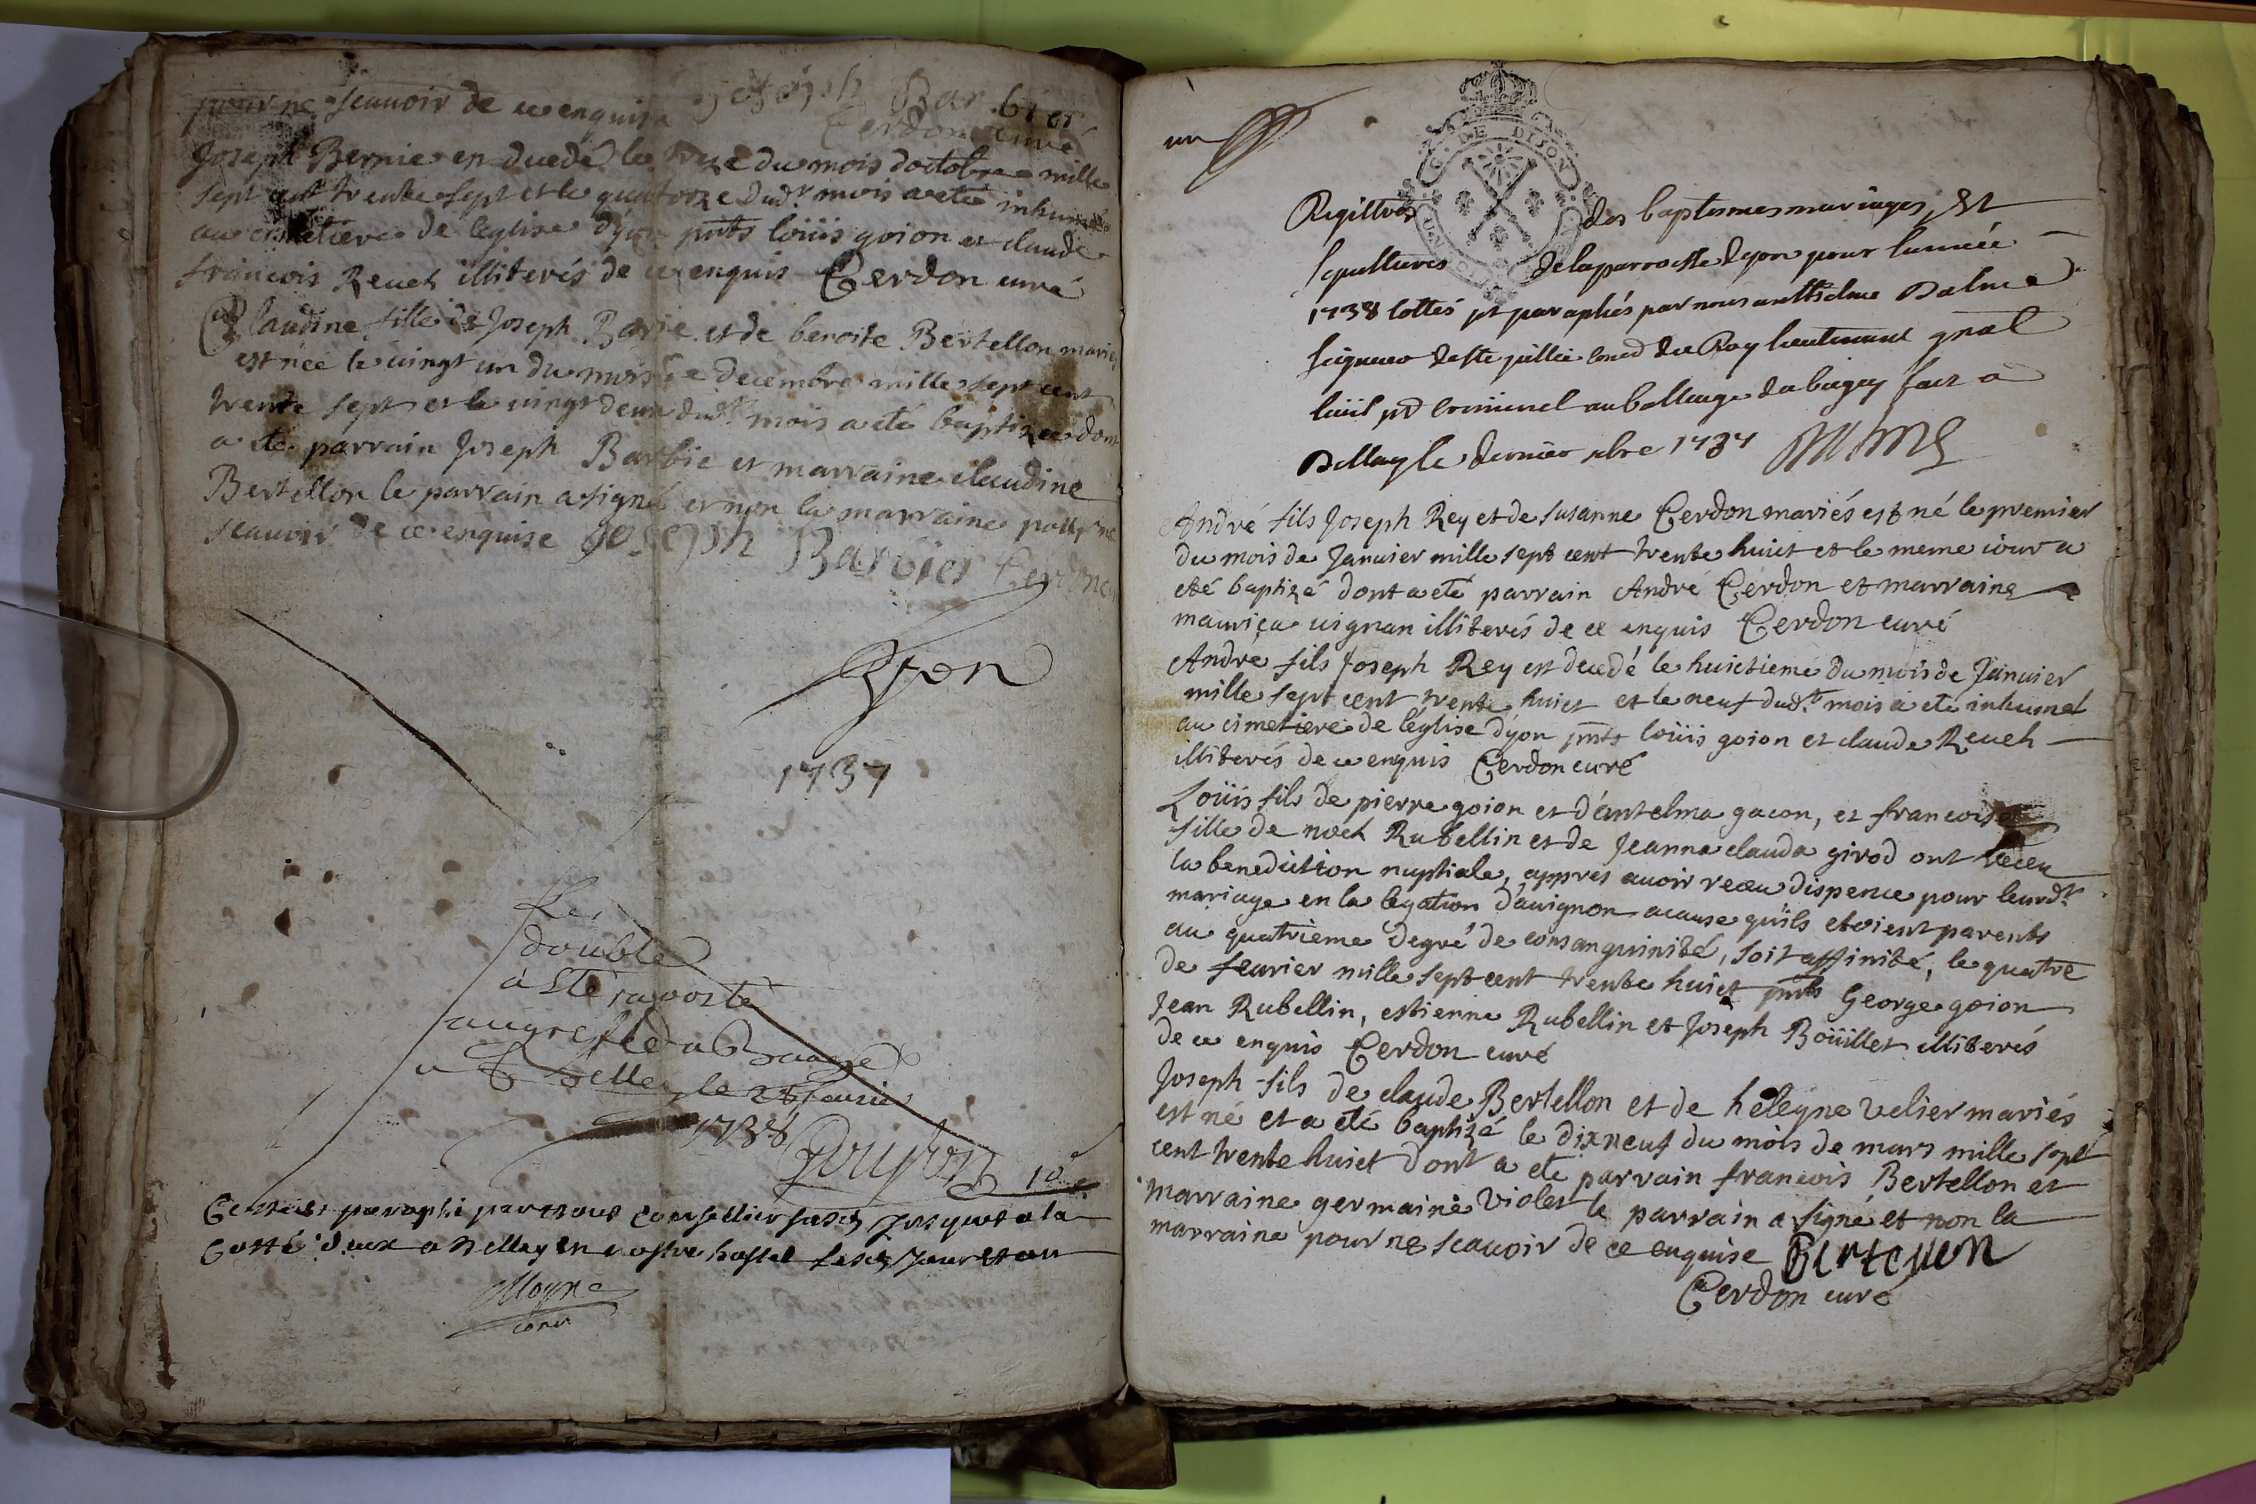 pour ne scauoir de ce enquise joseph Barbier
Cerdon curé
Joseph Bernier en decedé le treze du mois doctobre mille
sept cent trente sept et le quatorze dud.t mois a eté inhumé
au cimetiere de leglise dyon pnts loüis goion et claude
francois Reueh illiterés de ce enquis Cerdon curé
Claudine fille de Joseph et de benoite Bertellon mariés
est née le uingt un du mois de decembre mille sept cent
trente sept et le uingt deux dud.t mois a eté baptizée dont
a eté parrain Joseph Barbie et marraine claudine
Bertellon le parrain a signé et non la marraine pour ne
scauoir de ce enquise joseph Barbier Cerdon
yon
1737
Le
double
à Eté raporté
au greffe du
a Belley le feurier
1738
10
paraphé par nous Conseiller jusques a la
Cotté deux a Belley en nostre hostel
Moyne
un
G. DE DIJON
Registres des baptesmes mariages Et
sepultures de la parroisse dyon pour lannée
1738 cottés et paraphés par nous anthelme Balme
seigneur de Ste jullie Cons.d du Roy lieutenant gnal
ciuil et criminel au balliage du bugey fait a
Belley le dernier xbre 1737
André fils Joseph Rey et de susanne Cerdon mariés est né le premier
du mois de Januier mille sept cent trente huict et le meme iour a
eté baptizé dont a eté parrain Andre Cerdon et marraine
mauriça uignan illiterés de ce enquis Cerdon curé
Andre fils Joseph Rey est decedé le huictieme du mois de Januier
mille sept cent trente huict et le neuf dud.t mois a eté inhumé
au cimetiere de leglise dyon pnts loüis goion et claude Reueh
illiterés de ce enquis Cerdon curé
Loüis fils de pierre goion et d'antelma gacon, et francoise
fille de noel Rubellin et de Jeanna clauda girod ont receu
la benediction nuptiale, appres auoir receu dispence pour leurd.t
mariage en la legation d'auignon acause quïls etoient parents
au quatrieme degré de consanguinité, soit affinité, le quatre
de feurier mille sept cent trente huict pnts George goion
Jean Rubellin, estienne Rubellin et Joseph Boüillet illiterés
de ce enquis Cerdon curé
Joseph fils de claude Bertellon et de heleyne velier mariés
est né et a eté baptizé le dixneuf du mois de mars mille sept
cent trente huict dont a eté parrain francois Bertellon et
marraine germaine violet le parrain a signé et non la
marraine pour ne scauoir de ce enquise Bertellon
Cerdon curé